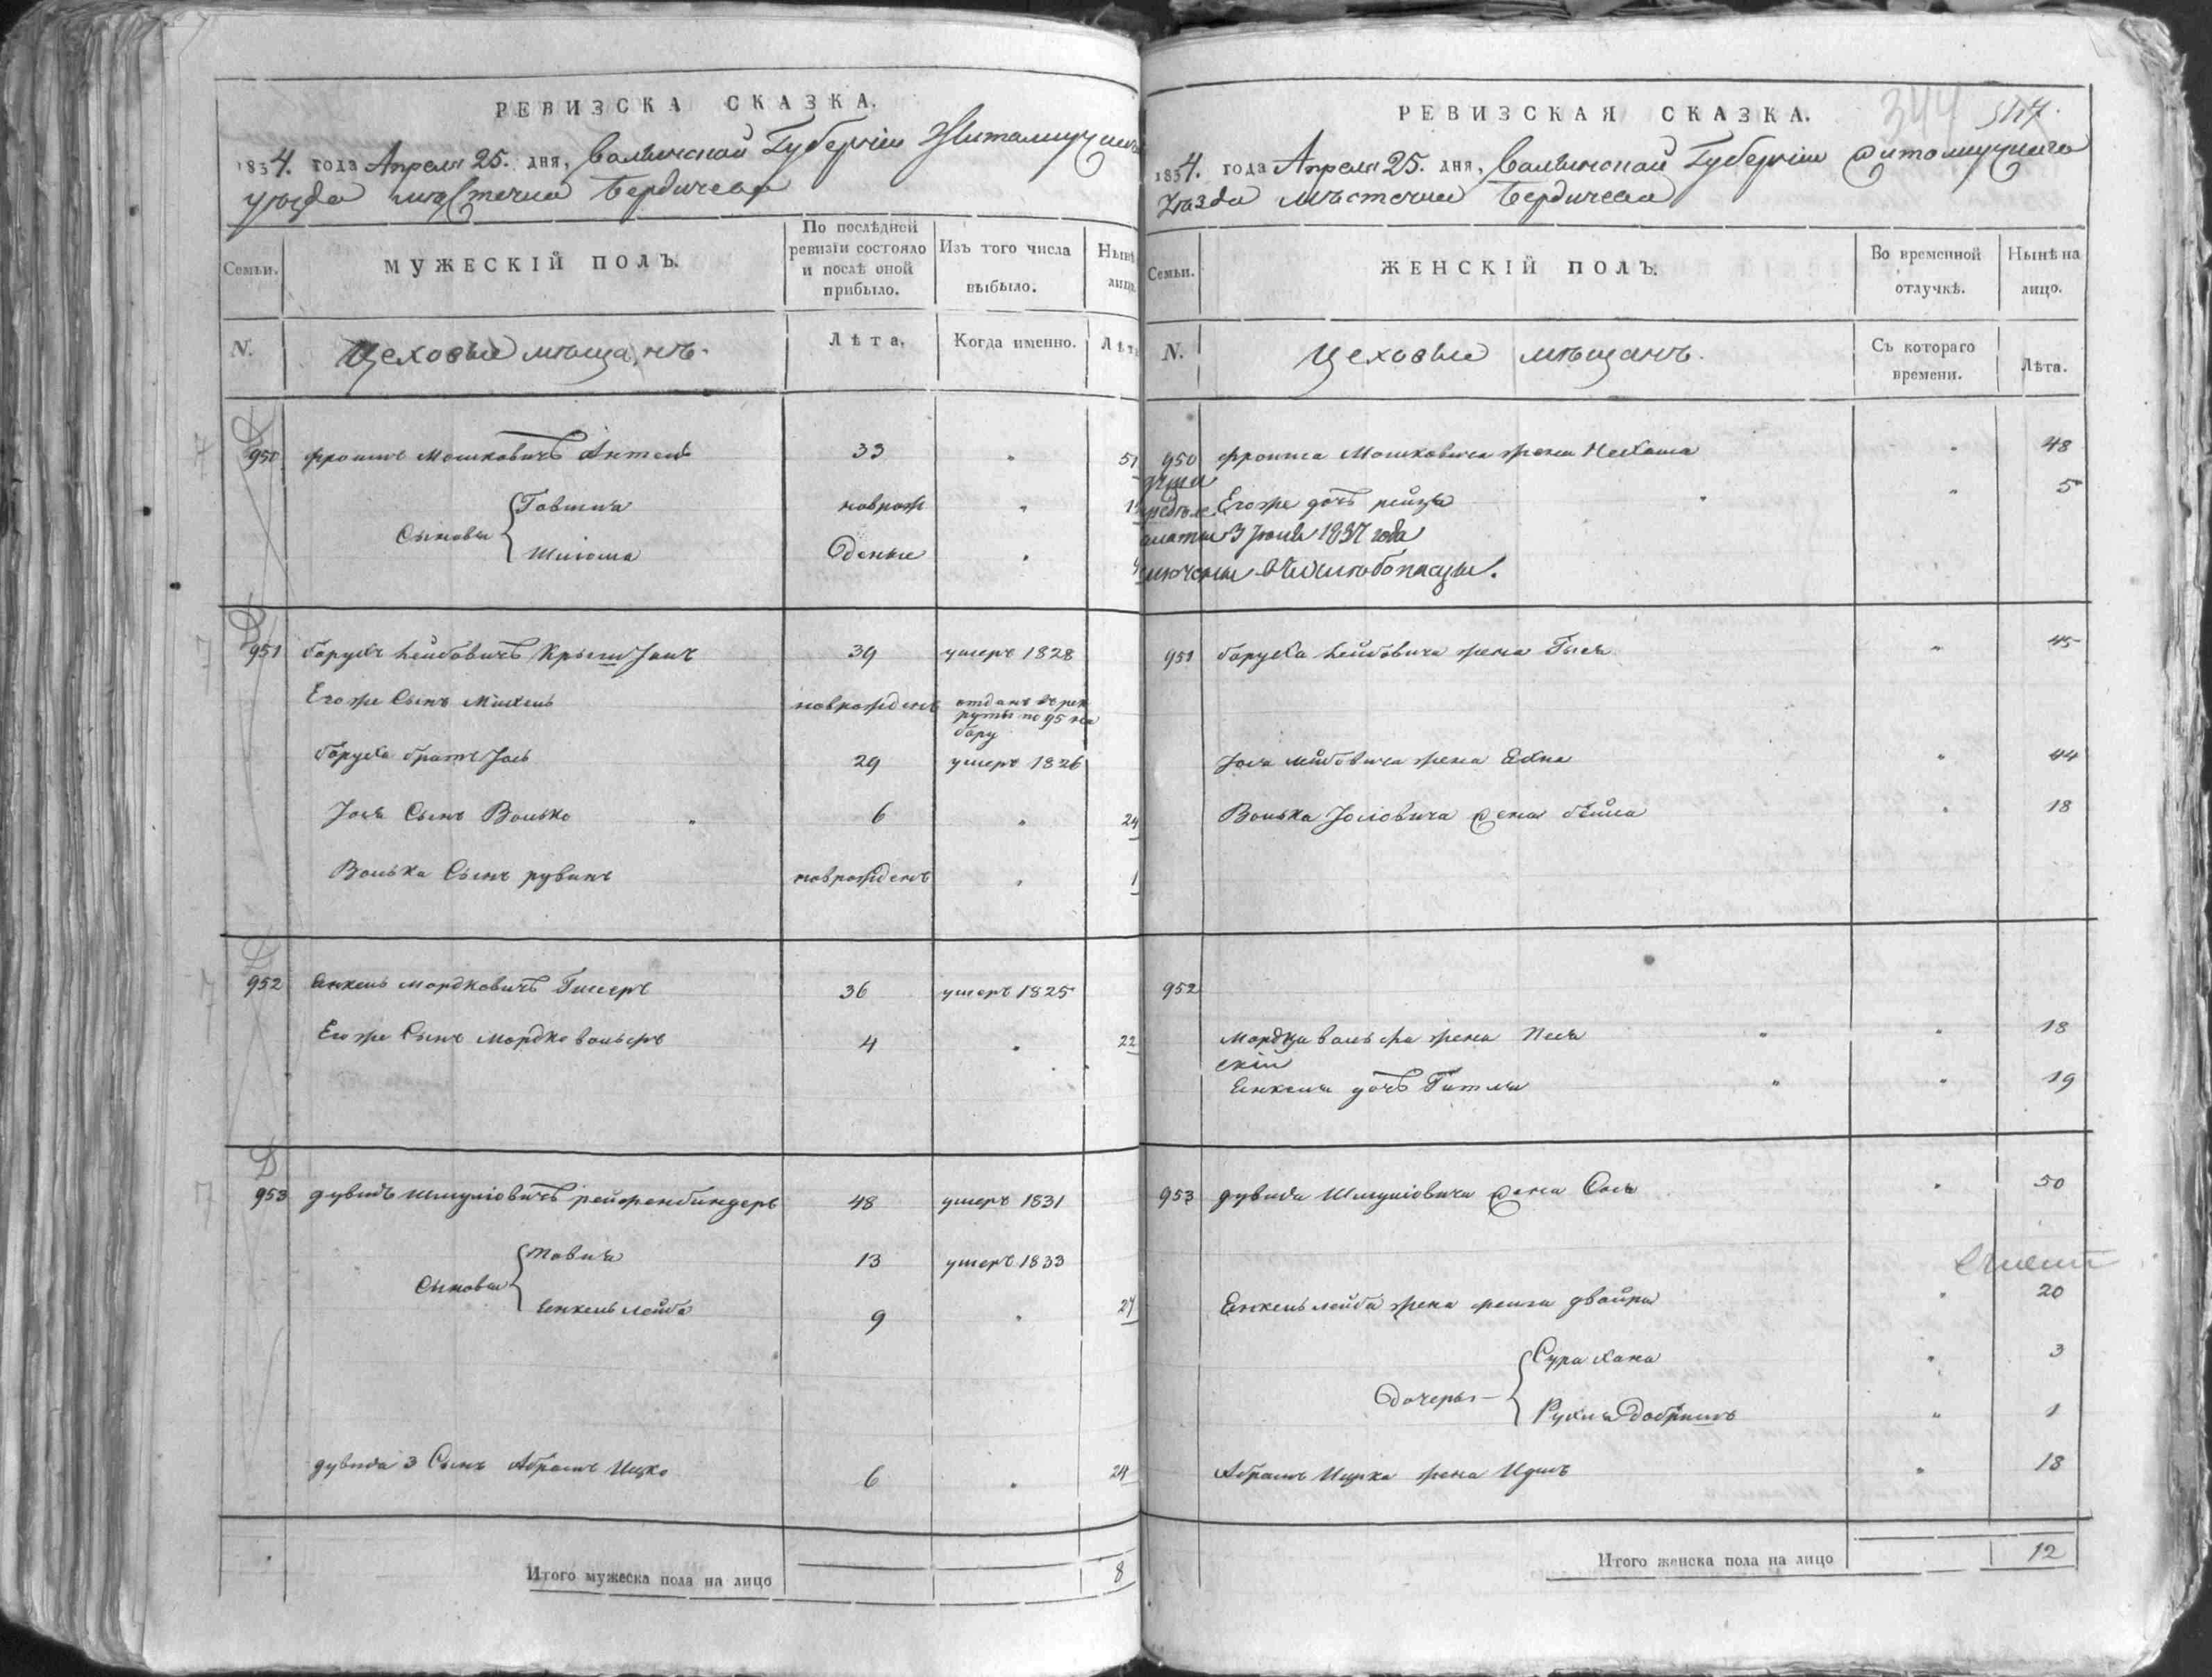 РЕВИЗСКА СКАЗКА.
1834. года Апреля 25. дня, Волынской Губерніи Житомирскаго
уѣзда мѣстечка Бердичева
Семьи.
МУЖЕСКІЙ ПОЛЪ.
По послѣдней ревизіи состояло и послѣ оной прибыло.
Изъ того числа выбыло.
Нынѣ лицо.
N.
Цеховые мѣщанъ.
Лѣта.
Когда именно.
Лѣта
950 Фроимъ Мошковичъ 33 " 51
Сыновья
новрож "
Шліома денные "
951 Барухъ Лейбовичъ 39 умеръ 1828
Егоже Сынъ Михель новрожденъ отданъ въ рек
руты по 95 на
бору
Баруха братъ Іось 29 умеръ 1826
Іося Сынъ Волько " 6 " 24
Волька Сынъ рувинъ новрожденъ " 1
952 Янкель Мордковичъ 36 умеръ 1825
Егоже Сынъ Мордко вольфъ 4 " 22
953 дувидъ Шмуліовичъ рейфенбиндеръ 48 умеръ 1831
Сыновья
Товія 13 умеръ 1833
Янкель лейба 9 "
дувида 3 Сынъ Абрамъ Ицко 6 " 24
Итого мужеска пола на лицо 8
344
РЕВИЗСКАЯ СКАЗКА.
1834. года Апреля 25. дня, Волынской Губерніи Житомирскаго
Уѣзда Мѣстечка Бердичева
Семьи.
ЖЕНСКІЙ ПОЛЪ.
Во временной отлучкѣ.
Нынѣ на лицо.
N.
Цеховые мѣщанъ.
Съ котораго времени.
Лѣта.
950 Фроима Мошковича жена Нехама " 48
Егоже дочь рейза " " 5
3 1837 года
951 баруха Лейбовича жена Гися " 45
Іося лейбовича жена Ехна " 44
Волька Іосіовича жена бейла " 18
952
Мордка вольфа жена Песя " " 18
Янкеля дочь Гитля " " 19
953 дувида Шмуліовича жена Сося " 50
Янкель лейба жена фейга двойра " 20
Дочеры
Сура хана " 3
Рухля Добришъ " 1
Абрамъ Ицка жена " 18
Итого женска пола на лицо 12